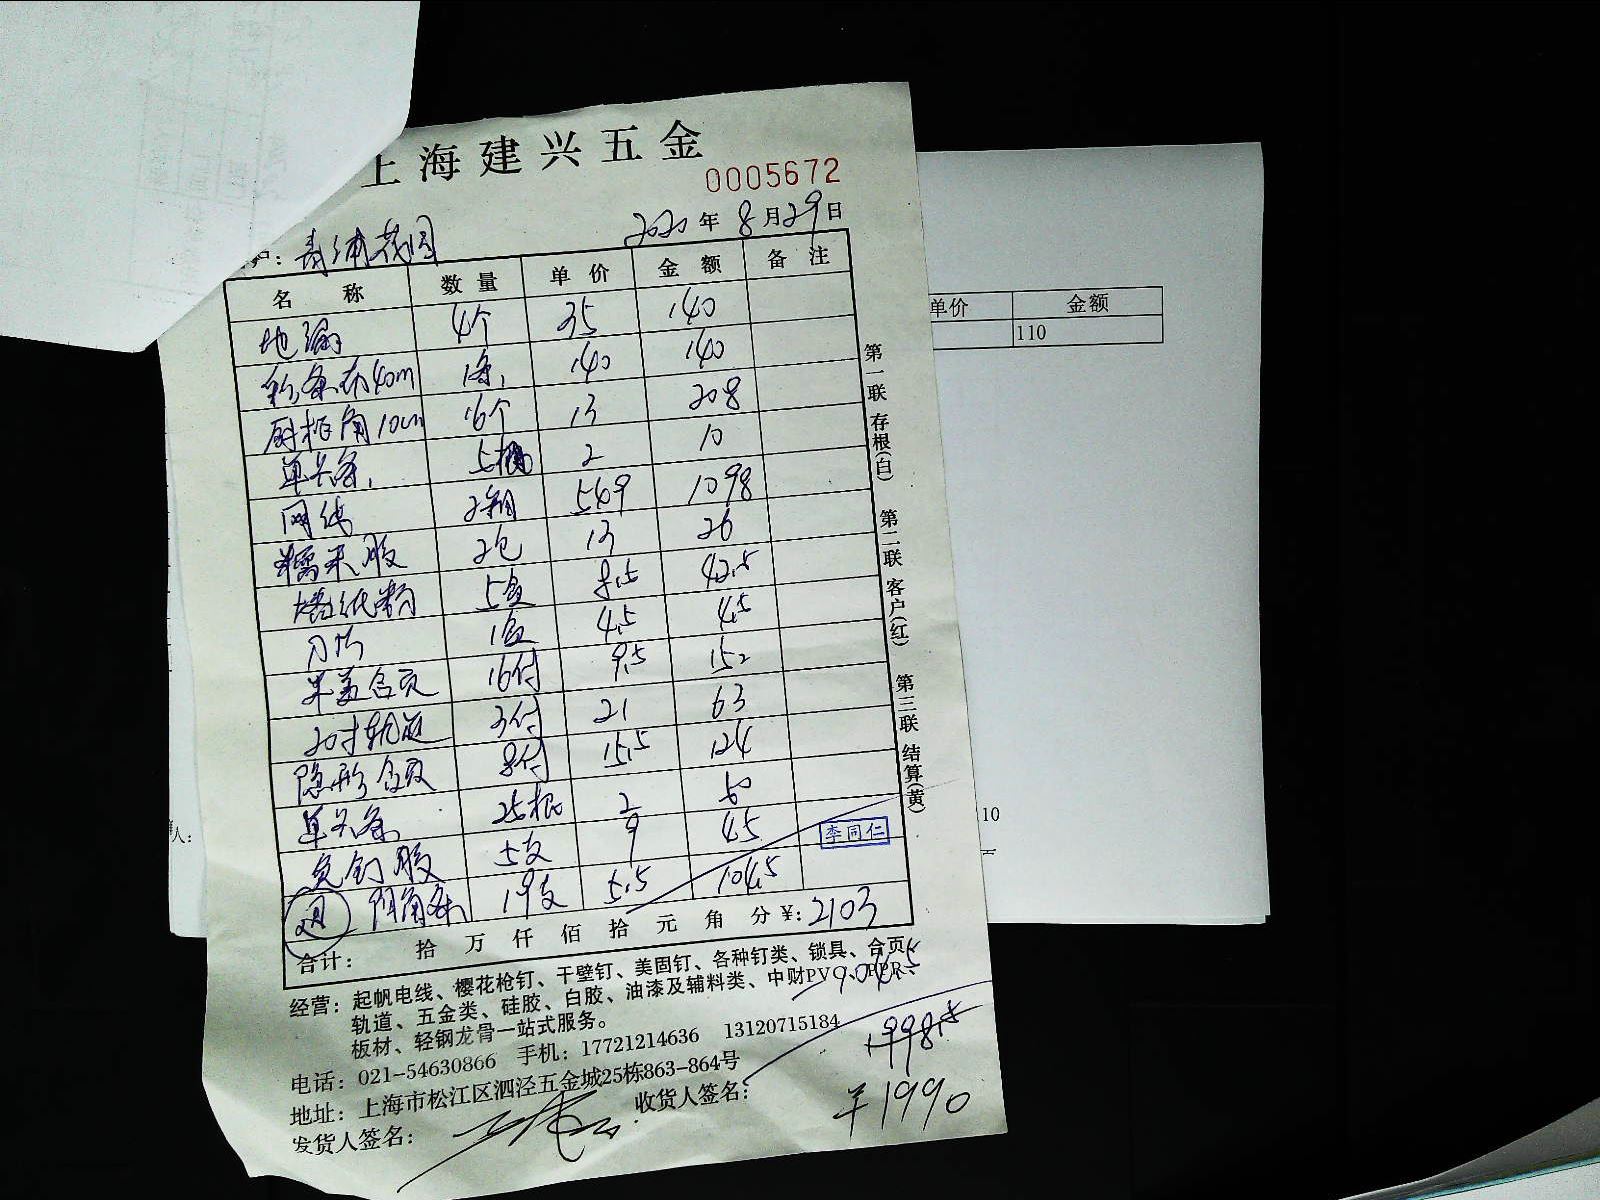 上海建兴五金
0005672
户: 青浦花园 2020年8月29日
名 称 数量 单价 金额 备注
地漏 4个 35 140
彩条布40m 1条 140 140
厨柜角10cm 16个 13 208
单头条 5根 2 10
网线 2箱 549 1098
糯米胶 2包 13 26
墙纸粉 5盒 8.5 42.5
刀片 1盒 4.5 4.5
半盖合页 16付 9.5 152
20寸轨道 3付 21 63
隐形合页 8付 15.5 124
单头条 25根 2 50
免钉胶 5支 9 45
退 阴角条 19支 5.5 104.5
李同仁
合计: 拾 万 仟 佰 拾 元 角 分 ¥: 2103
第一联 存根(白) 第二联 客户(红) 第三联 结算(黄)
经营: 起帆电线、樱花枪钉、干壁钉、美固钉、各种钉类、锁具、合页、
轨道、五金类、硅胶、白胶、油漆及辅料类、中财PVC、PPR、
板材、轻钢龙骨一站式服务。
电话: 021-54630866 手机: 17721214636 13120715184
地址: 上海市松江区泗泾五金城25栋863-864号
发货人签名: 收货人签名:
1998.5
¥1990
单价 金额
110
人:
10